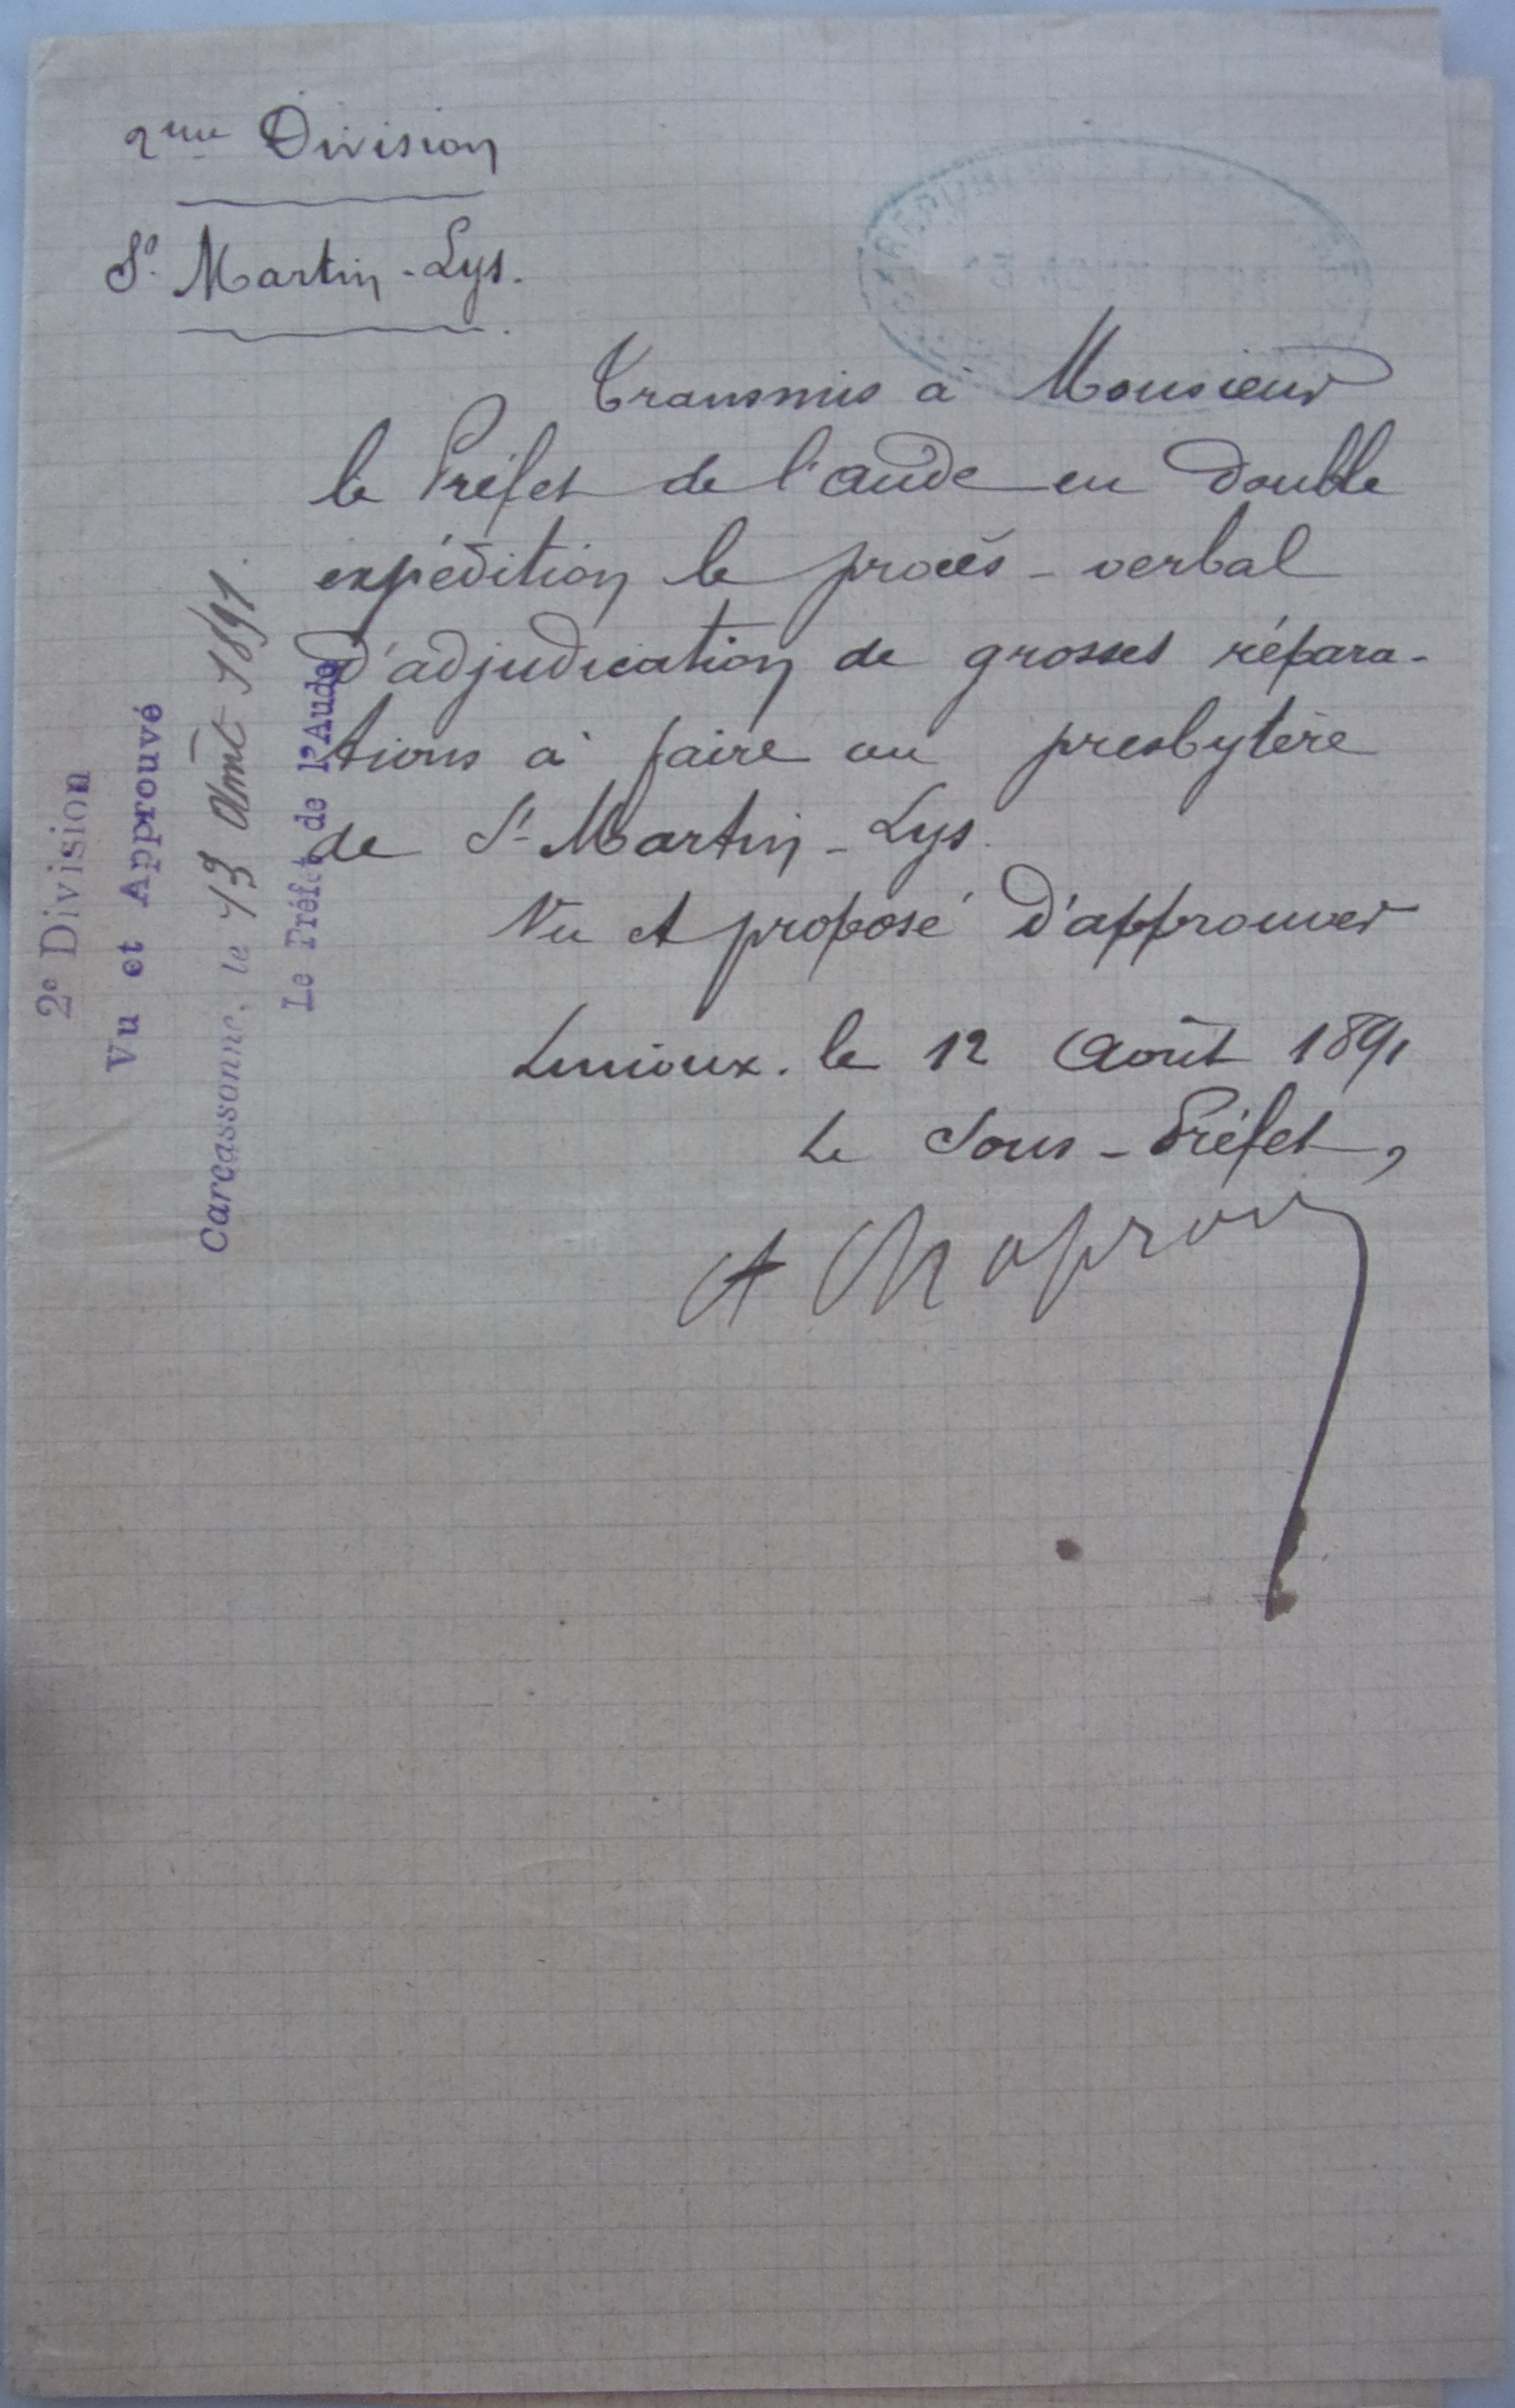 2me Division
St. Martin-Lys.
Transmis à Monsieur
le Préfet de l'Aude en double
expédition le procès-verbal
d'adjudication de grosses répara-
tions à faire au presbytère
de St-Martin-Lys.
Vu et proposé d'approuver
Limoux. le 12 Août 1891
Le Sous-Préfet,
2e Division
Vu et Approuvé
Carcassonne, le 13 Août 1891.
Le Préfet de l'Aude